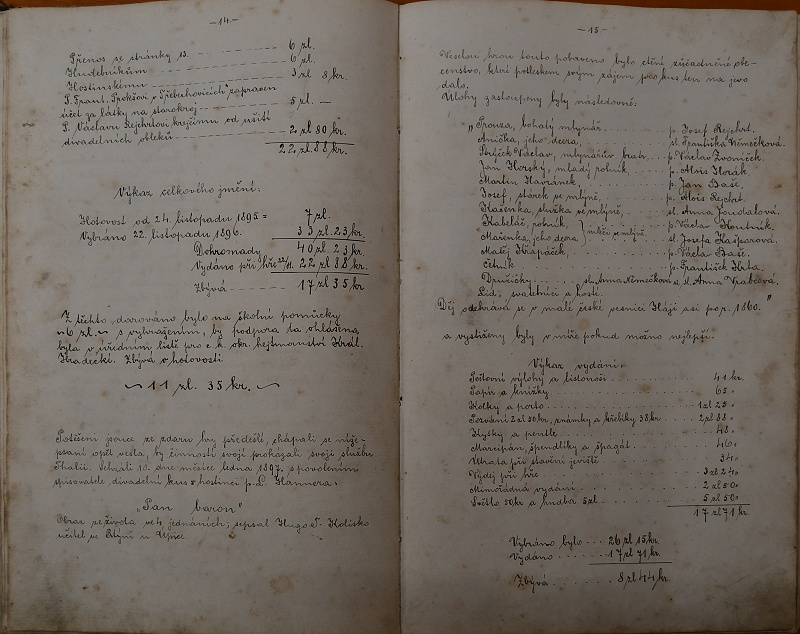 -14.-
Přenos se stránky 13. 6 zl.
Hudebníkům 6 zl.
Hostinskému 3 zl 8 kr.
P. Frant. Prokšovi v Třebechovicích zapraven
účet za látky na starokroj 5 zl. —
P. Václavu Rejchrtovi, krejčímu od ušití
divadelních obleků 2 zl. 80 kr.
22 zl. 88 kr.
Výkaz celkového jmění:
Hotovost od 24. listopadu 1895 = 7 zl.
Vybráno 22. listopadu 1896. 33 zl. 23 kr.
Dohromady 40 zl. 23 kr.
Vydáno při hře 22/11. 22 zl. 88 kr.
Zbývá 17 zl 35 kr
Z těchto darováno bylo na školní pomůcky
„6 zl.“ s vyhražením, by podpora ta ohlášena
byla v úředním listě pro c. k. okr. hejtmanství Král.
Hradecké. Zbývá v hotovosti
11 zl. 35 kr.
Potěšeni jsouce ze zdaru hry předešlé, chápali se níže-
psaní opět vesla, by činností svojí prokázali svoji službu
Thalii. Sehráli 10. dne měsíce ledna 1897, s povolením
spisovatele divadelní kus v hostinci p. L. Hannera:
„Pan baron“
Obraz ze života ve 4 jednáních; sepsal Hugo T. Kolisko
učitel ve Rtyni u Úpice
-15-
Veselou hrou touto pobaveno bylo ctěné súčastněné obe-
censtvo, které potleskem svým zájem pro kus ten na jevo
dalo.
Úlohy zastoupeny byly následovně:
„Prouza, bohatý mlynář p. Josef Rejchrt.
Anička, jeho dcera, sl. Františka Němečkova.
Václav, mlynářův bratr p. Václav Zvoníček.
Jan Horský, mladý rolník, p. Alois Horák.
Martin Havránek p. Jan Baše.
Josef, stárek ve mlýně, p. Alois Rejchrt.
Kačenka, služka ve mlýně, sl. Anna
Kabeláč, rolník, p. Václav
Mařenka, jeho dcera sl. Josefa Kašparová.
Matěj Křapáček, p. Václav Baše.
Četník p. František Hrta.
Družičky sl. Anna Němečkova a sl. Anna Vrabcová.
Lid, svatebníci a hosté.
Děj odehrává se v malé české vesnici Háji asi po r. 1860.“
a vystiženy byly v míře pokud možno nejlepší.
Výkaz vydání:
Poštovní výlohy a listonoši 41 kr.
Papír a knížky 65 "
Kolky a porto 1 zl 25 "
Pozvání 2 zl 50 kr, známky a hřebíky 38 kr. 2 zl 88 "
Kytky a pentle 48 "
Marcipán, špendlíky a špagát 40 "
Útrata při stavění jeviště 34 "
Výdej při hře 3 zl 24 "
Mimořádná vydání 2 zl 50 "
Světlo 50 kr a hudba 5 zl. 5 zl 50 "
17 zl 71 kr.
Vybráno bylo 26 zl 15 kr.
Vydáno 17 zl 71 kr.
Zbývá 8 zl 44 kr.